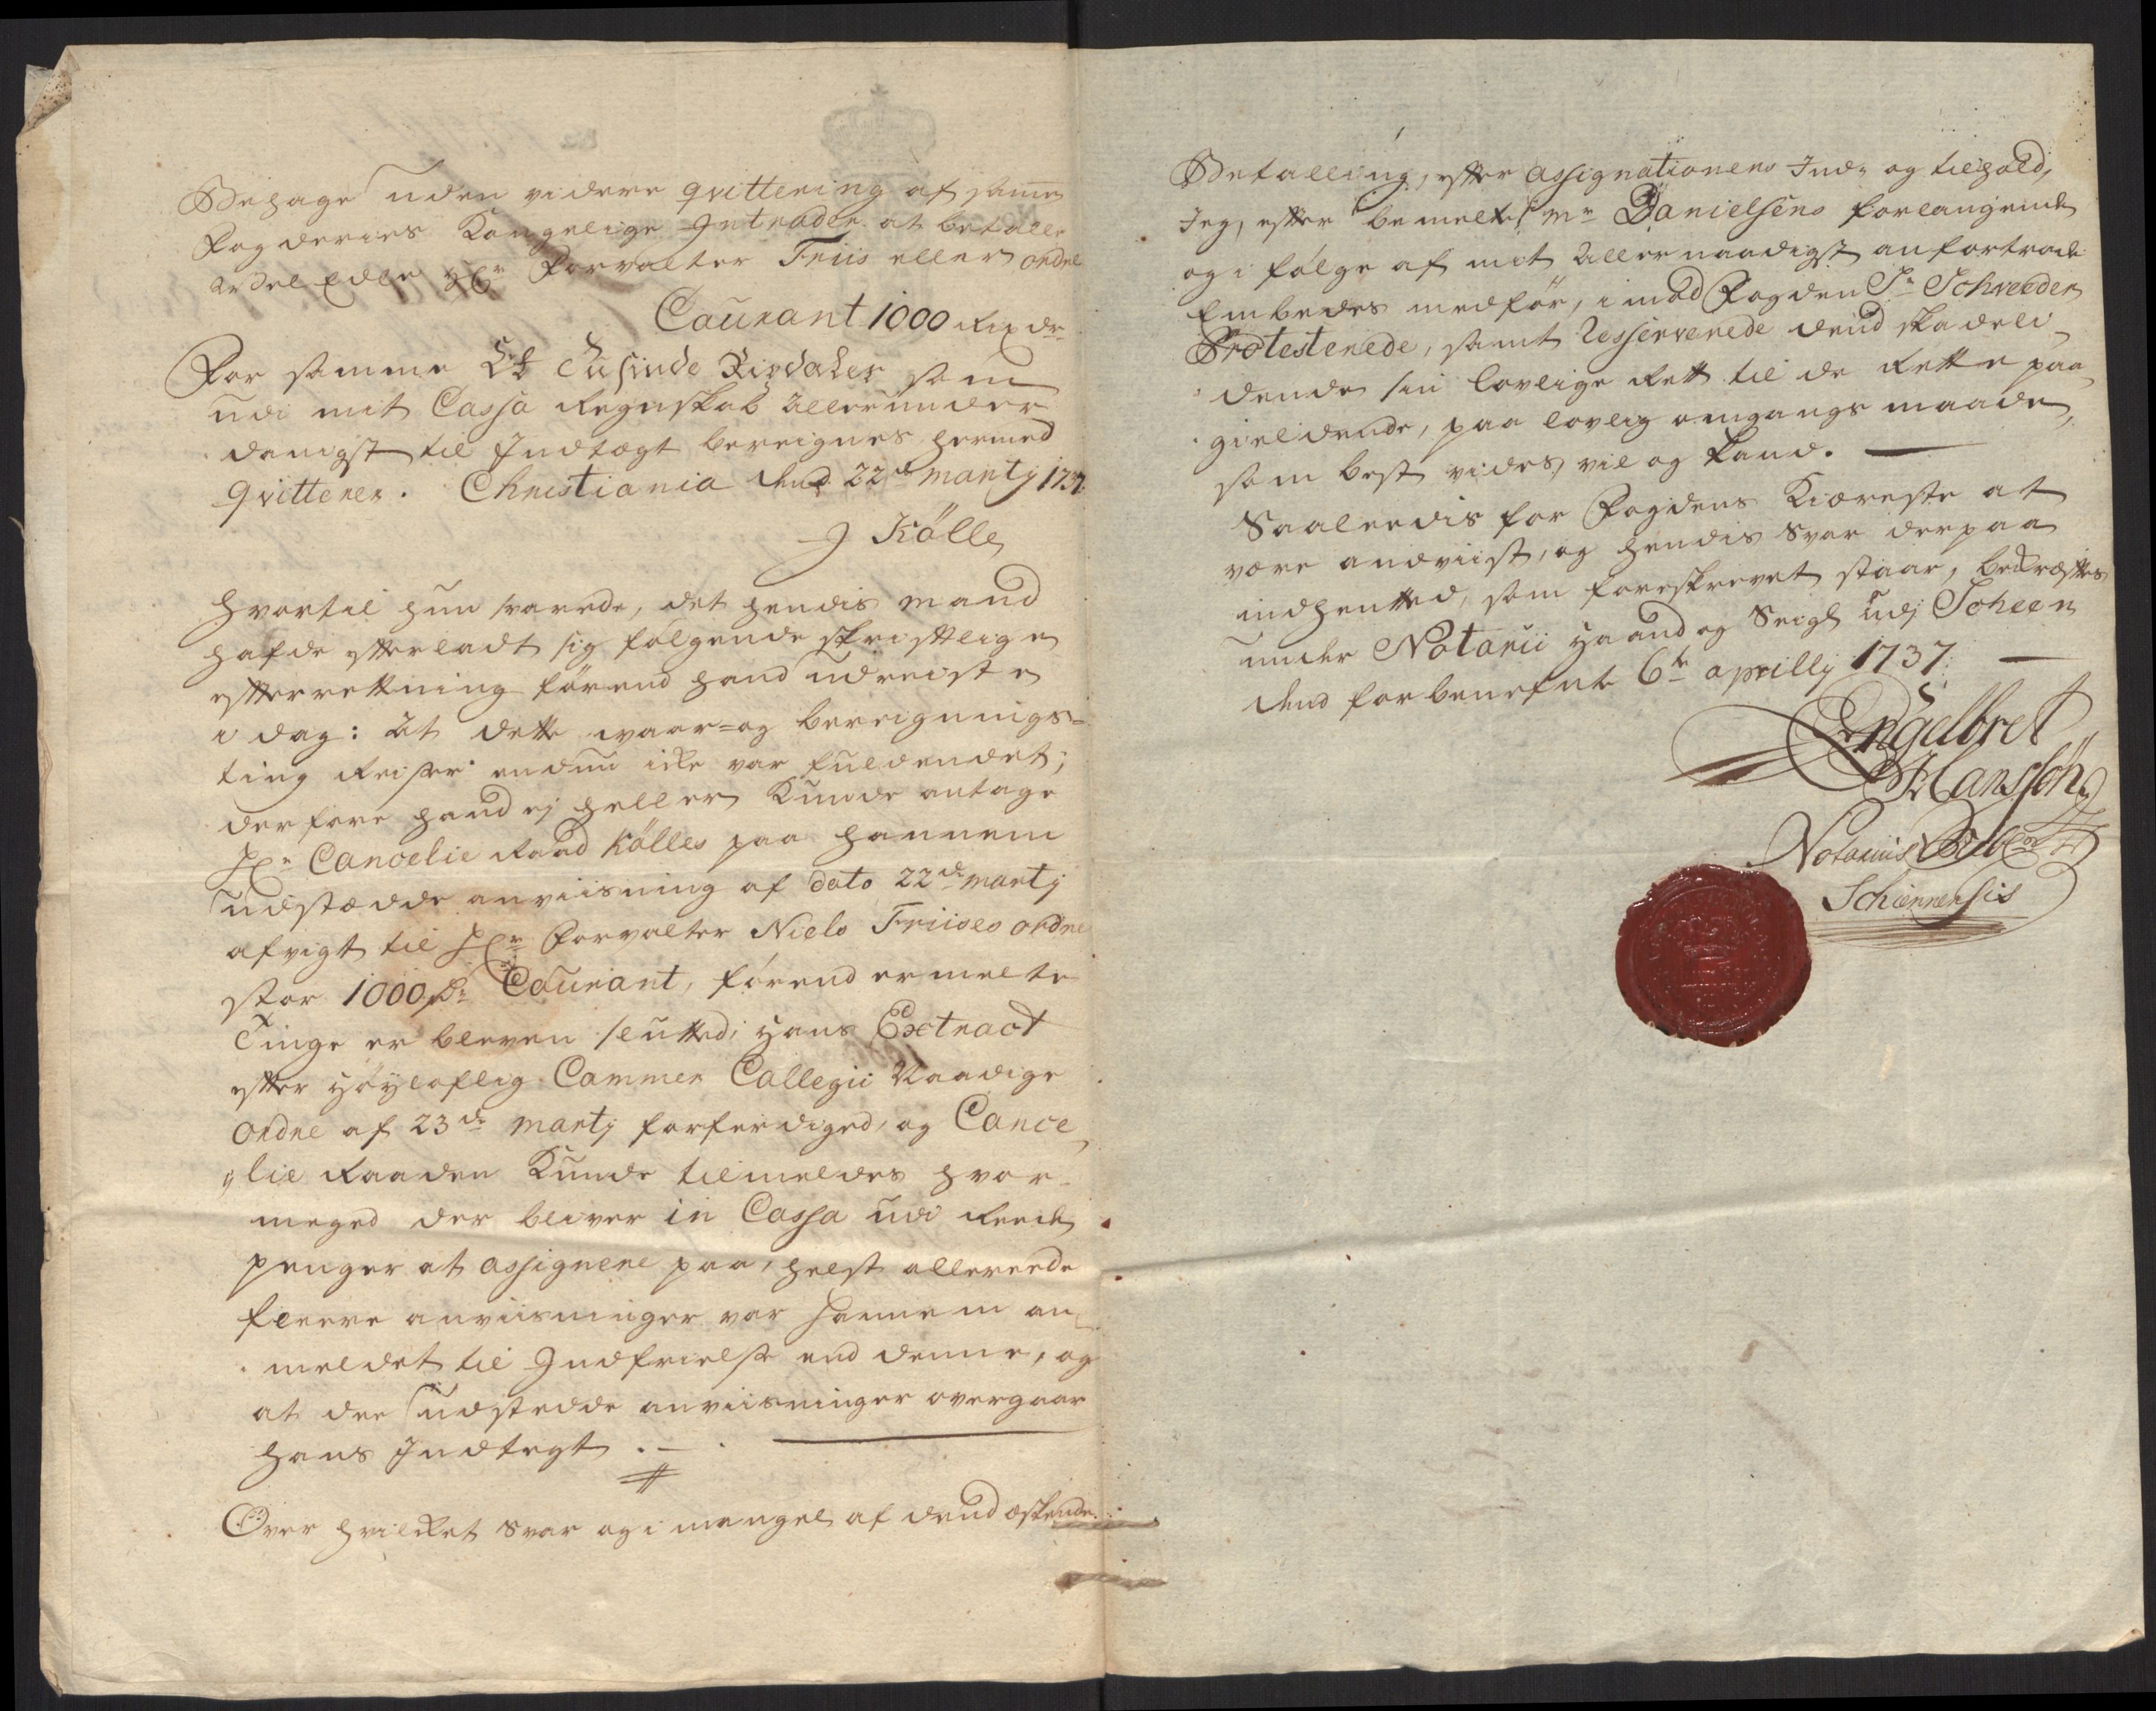 Behage uden videre qvittering af samme
Fogderies Kongelige Intrader at betalle
Velædle Hr Forvalter Friis eller ordre
Courant 1000 Rixdr
For samme Et Tusinde Rixdaler som
udi mit Cassa Regnskab Allerunder
danigst til Indtægt bereignes hermed
qvitterer. Christiania dend 22de Martij 1737.
J Kölle
Hvortil hun svarede, det hendis Mand
hafde efterladt sig følgende skriftlige
efterretning førend hand udreiste
i dag: At dette waar- og bereignings-
ting Reiser endnu icke var fuldendet;
derfore hand ej heller kunde antage
Hr Cancelie Raad Kölles paa hannem
udstædde anviisning af dato 22de Martij
afvigt til Hr Forvalter Niels Friises ordre
stor 1000 Rdr Courant, førend ermelte
Tinge er bleven slutted, hans Extract
efter Høyloflig Cammer Collegii Naadige
ordre af 23de Martij forferdiged, og Cance
lie Raaden kunde tilmeldes hvor
meged der bliver in Cassa udi Reede
penger at assignere paa, helst allereede
fleere anviisninger var hannem an
meldet til Indfrielse end denne, og
at dee udstedde anviisninger overgaar
hans Indtegt.
Over hvilcket svar og i mangel af dend æskende
Betalling, efter assignationens Ind- og tilhold,
Jeg, efter bemelte Mr Danielsens forlangende
og i følge af mit Allernaadigst anfortroede
Embedes medfør, imod Fogden Sr Schreeder
Protesterede, samt Resserverede dend skadeli
dende sin lovlige Rett til de Rette paa
gieldende, paa lovlig omgangs maade,
som best vides, vil og kand.
Saaleedis for Fogdens Kiæreste at
være andviist, og hendis svar derpaa
indhentted, som foreskrevet staar, bekræftes
under Notarii Haand og Seigl udj Scheen
dend forbenefnte 6te aprilly 1737.
Engelbret
Hanssøn
Notarius Publicus
Schiennensis